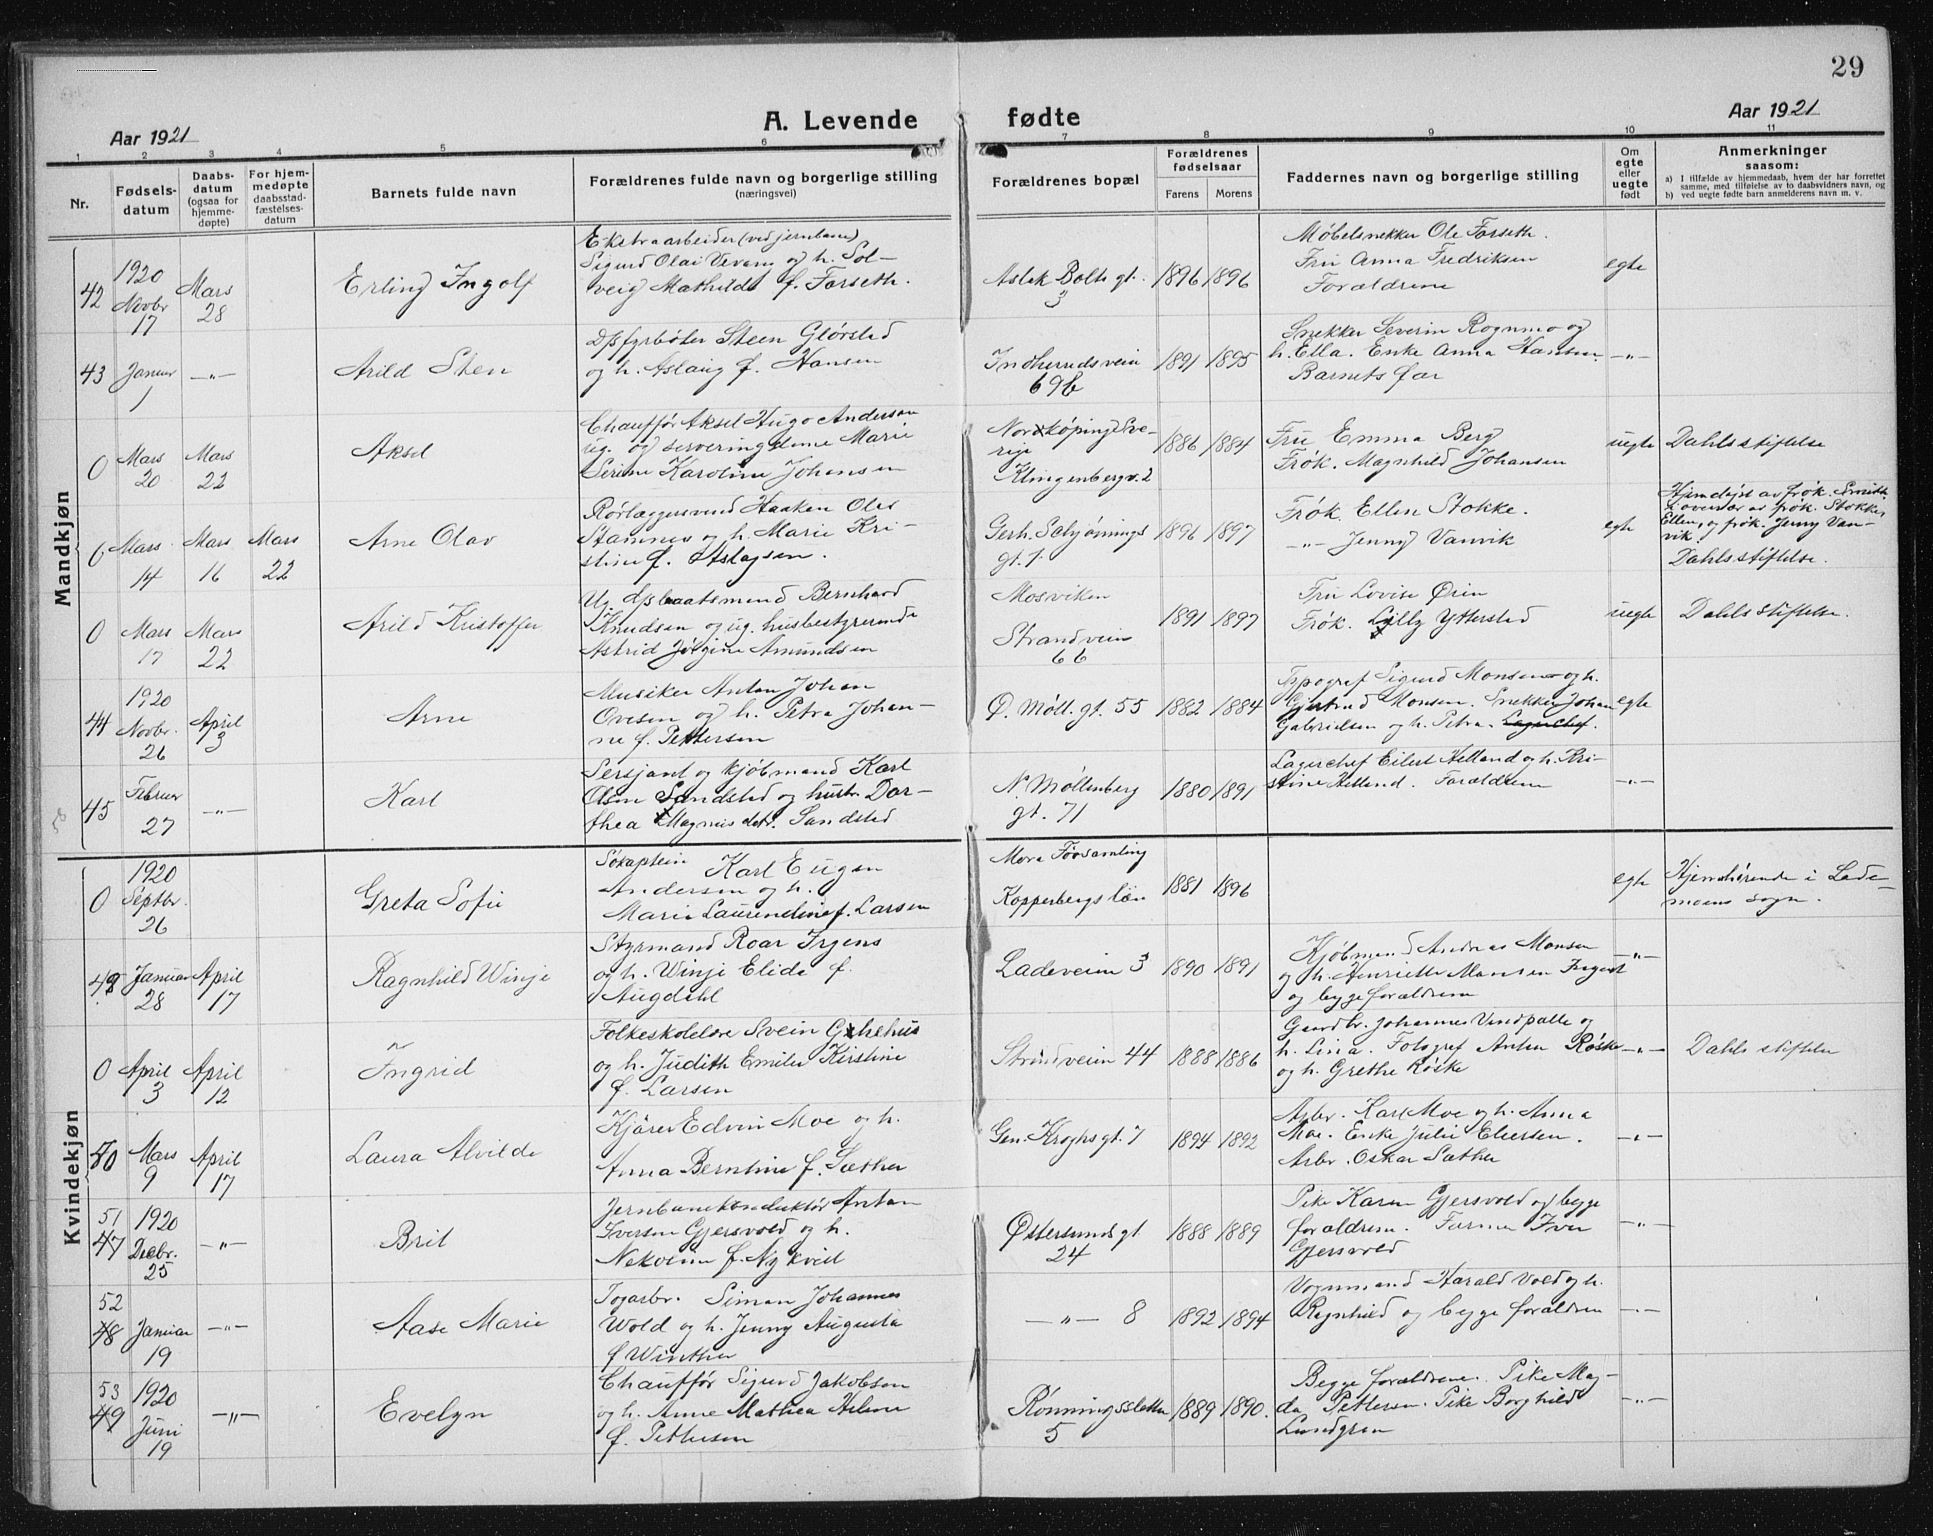 29
Aar 1921
A. Levende fødte
Aar 1921
1 2 3 4 5 6 7 8 9 10 11
Nr.
Fødsels-
datum
Daabs-
datum
(ogsaa for
hjemme-
døpte)
For hjem-
medøpte
daabsstad-
fæstelses-
datum
Barnets fulde navn
Forældrenes fulde navn og borgerlige stilling
(næringsvei)
Forældrenes bopæl
Forældrenes
fødselsaar
Farens Morens
Faddernes navn og borgerlige stilling
Om
egte
eller
uegte
født
Anmerkninger
saasom:
a) I tilfælde av hjemmedaab, hvem der har forrettet
samme, med tilføielse av to daabsvidners navn, og
b) ved uegte fødte barn anmelderens navn m. v.
Mandkjøn
42
1920
Novbr
17
Mars
28
Erling Ingolf
Ekstraarbeider (ved jernbane)
Sigurd Olai Vevang og h. Sol-
veig Mathilde f. Forseth.
Aslak Bolts gt.
3
1896 1896
Møbelsnekker Ole Forseth.
Fru Anna Fredriksen
Forældrene
egte
43
Januar
1
—"—
Arild Sten
Dpsfyrbøter Steen Glørstad
og h. Aslaug f. Hansen
Indherredsveien
69b
1891 1895
Snekker Severin Rognmo og
h. Ella. Enke Anna Hansen
Barnets far
—"—
0
Mars
20
Mars
22
Aksel
Chauffør Aksel Hugo Anderson
ug. og serveringsdame Marie
Serine Karoline Johansen
Norrköping Sve-
rige
Klingenbergv. 2
1886 1884
Fru Emma Berg
Frøk. Magnhild Johansen
uegte
Dahls stiftelse
0
Mars
14
Mars
16
Mars
22
Arne Olav
Rørlæggersvend Haaken Oles
Stamnes og h. Marie Kri-
stine f. Aslagsen.
Gerh. Schjønings
gt. 1
1896 1897
Frøk. Ellen Stokke.
—"— Jenny Vanvik
egte
Hjemdøpt av frøk. Smith
Overvær av frøk. Stokke,
Ellen, og frøk. Jenny Van-
vik.
Dahls stiftelse.
0
Mars
17
Mars
22
Arild Kristoffer
Ug. dpsbaatsmand Bernhard
Knudsen og ug. husbestyrerinde
Astrid Jørgine Amundsen
Mosviken
Strandveien
66
1891 1897
Fru Lovise Ørin
Frøk. Lilly Ytterstad
uegte
Dahls stiftelse.
44
1920
Novbr.
26
April
3
Arne
Musiker Anton Johan
Ovesen og h. Petra Johan-
ne f. Pettersen
Ø. Møll. gt. 55
1882 1884
Typograf Sigurd Monsen og h.
Gjertrud Monsen. Snekker Johan
Gabrielsen og h. Petra. Lagerchef.
egte
45
Februar
27
—"—
Karl
Sersjant og kjøbmand Karl
Olsen Sandstad og hustr. Dor-
thea Magnusdtr. Sandstad
N. Møllenberg
gt. 71
1880 1891
Lagerchef Eilert Helland og h. Kri-
stine Helland. Forældrene
—"—
Kvindekjøn
0
1920
Septbr.
26
Greta Sofie
Søkaptein Karl Eugen
Andersen og h.
Marie Laurendine f. Larsen
Mora Församling
Kopperbergs län
1881 1896
egte
Hjemhørende i Lade-
moens sogn.
Januar
28
April
17
Ragnhild Winje
Styrmand Roar Irgens
og h. Winje Elida f.
Augdahl
Ladeveien 3
1890 1891
Kjøbmand Andreas Monsen
og h. Henriette Monsen Irgens
og begge forældrene
—"—
0
April
3
April
12
Ingrid
Folkeskolelære Svein Grhehus
og h. Judith Emilie Kirstine
f. Larsen
Strindveien 44
1888 1886
Gaardbr. Johannes Vindpalle og
h. Lina. Fotograf Anton Røske
og h. Grethe Røske
—"—
Dahls stiftelse
50
Mars
9
April
17
Laura Alvilde
Kjører Edvin Moe og h.
Anna Berntine f. Sæther
Gen. Kroghs gt. 7
1894 1892
Arbr. Karl Moe og h. Anna
Moe. Enke Julie Ellersen.
Arbr. Oskar Sæther
—"—
51
47
1920
Decbr.
25
—"—
Brit
Jernbanekonduktør Anton
Iversen Gjersvold og h.
Nekoline f. Nykvist
Østersundsgt
24
1888 1889
Pike Karen Gjersvold og begge
forældrene. Farmen Iver
Gjersvold
—"—
52
48
Januar
19
—"—
Aase Marie
Togarbr. Simon Johannes
Wold og h. Jenny Augusta
f Winther
—"— 8
1892 1894
Vognmand Harald Vold og h.
Ragnhild og begge forældrene
—"—
53
49
1920
Juni
19
—"—
Evelyn
Chauffør Sigurd Jakobsen
og h. Anne Mathea Helene
f. Pettersen
Rønningssletten
5
1889 1890.
Begge forældrene. Pike Mag-
da Pettersen. Pike Borghild
Lundgren
—"—